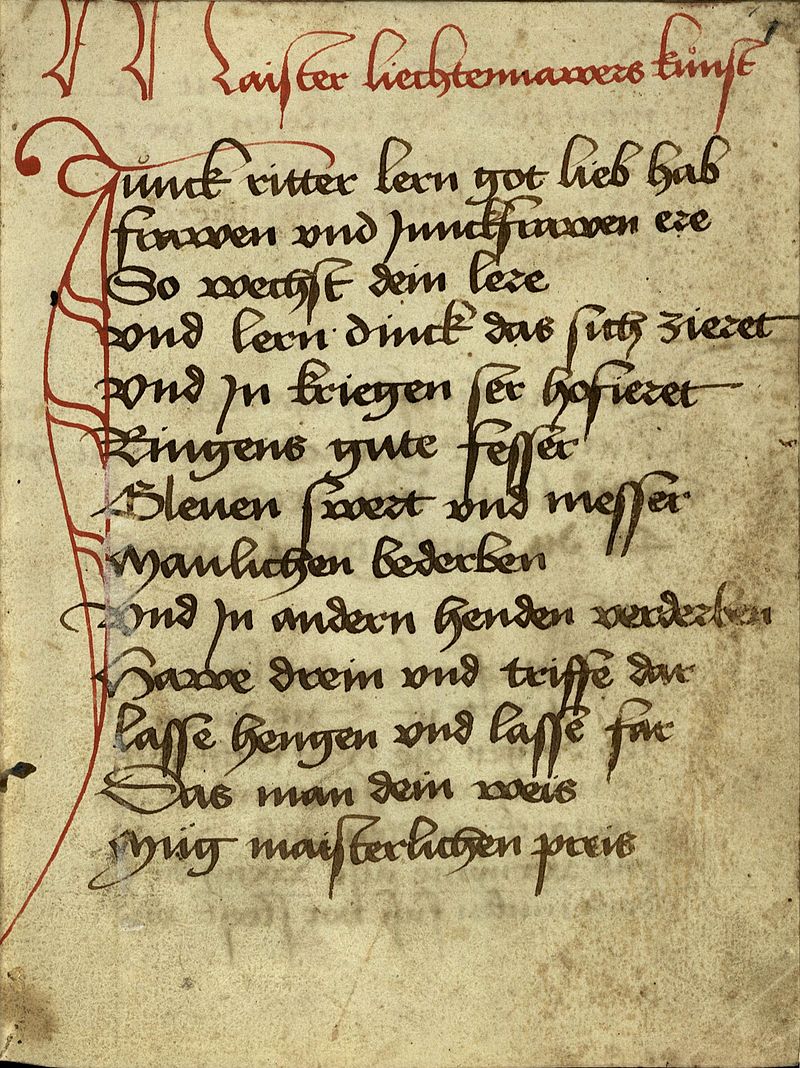 Maister liechtennawers kůnst
Jůnck ritter lern got lieb hab
frawen vnd Junckfrawen ere
So wechst dein lere
vnd lern dinck das sich zieret
vnd Jn kriegen ser hofieret
Ringens gute fesser
Gleuen swert vnd messer
Manlichen bederben
Vnd Jn andern henden verderben
Hawe drein vnd triffe dar
lasse hengen vnd lasse far
Das man dein weis
Müg maisterlichen preis